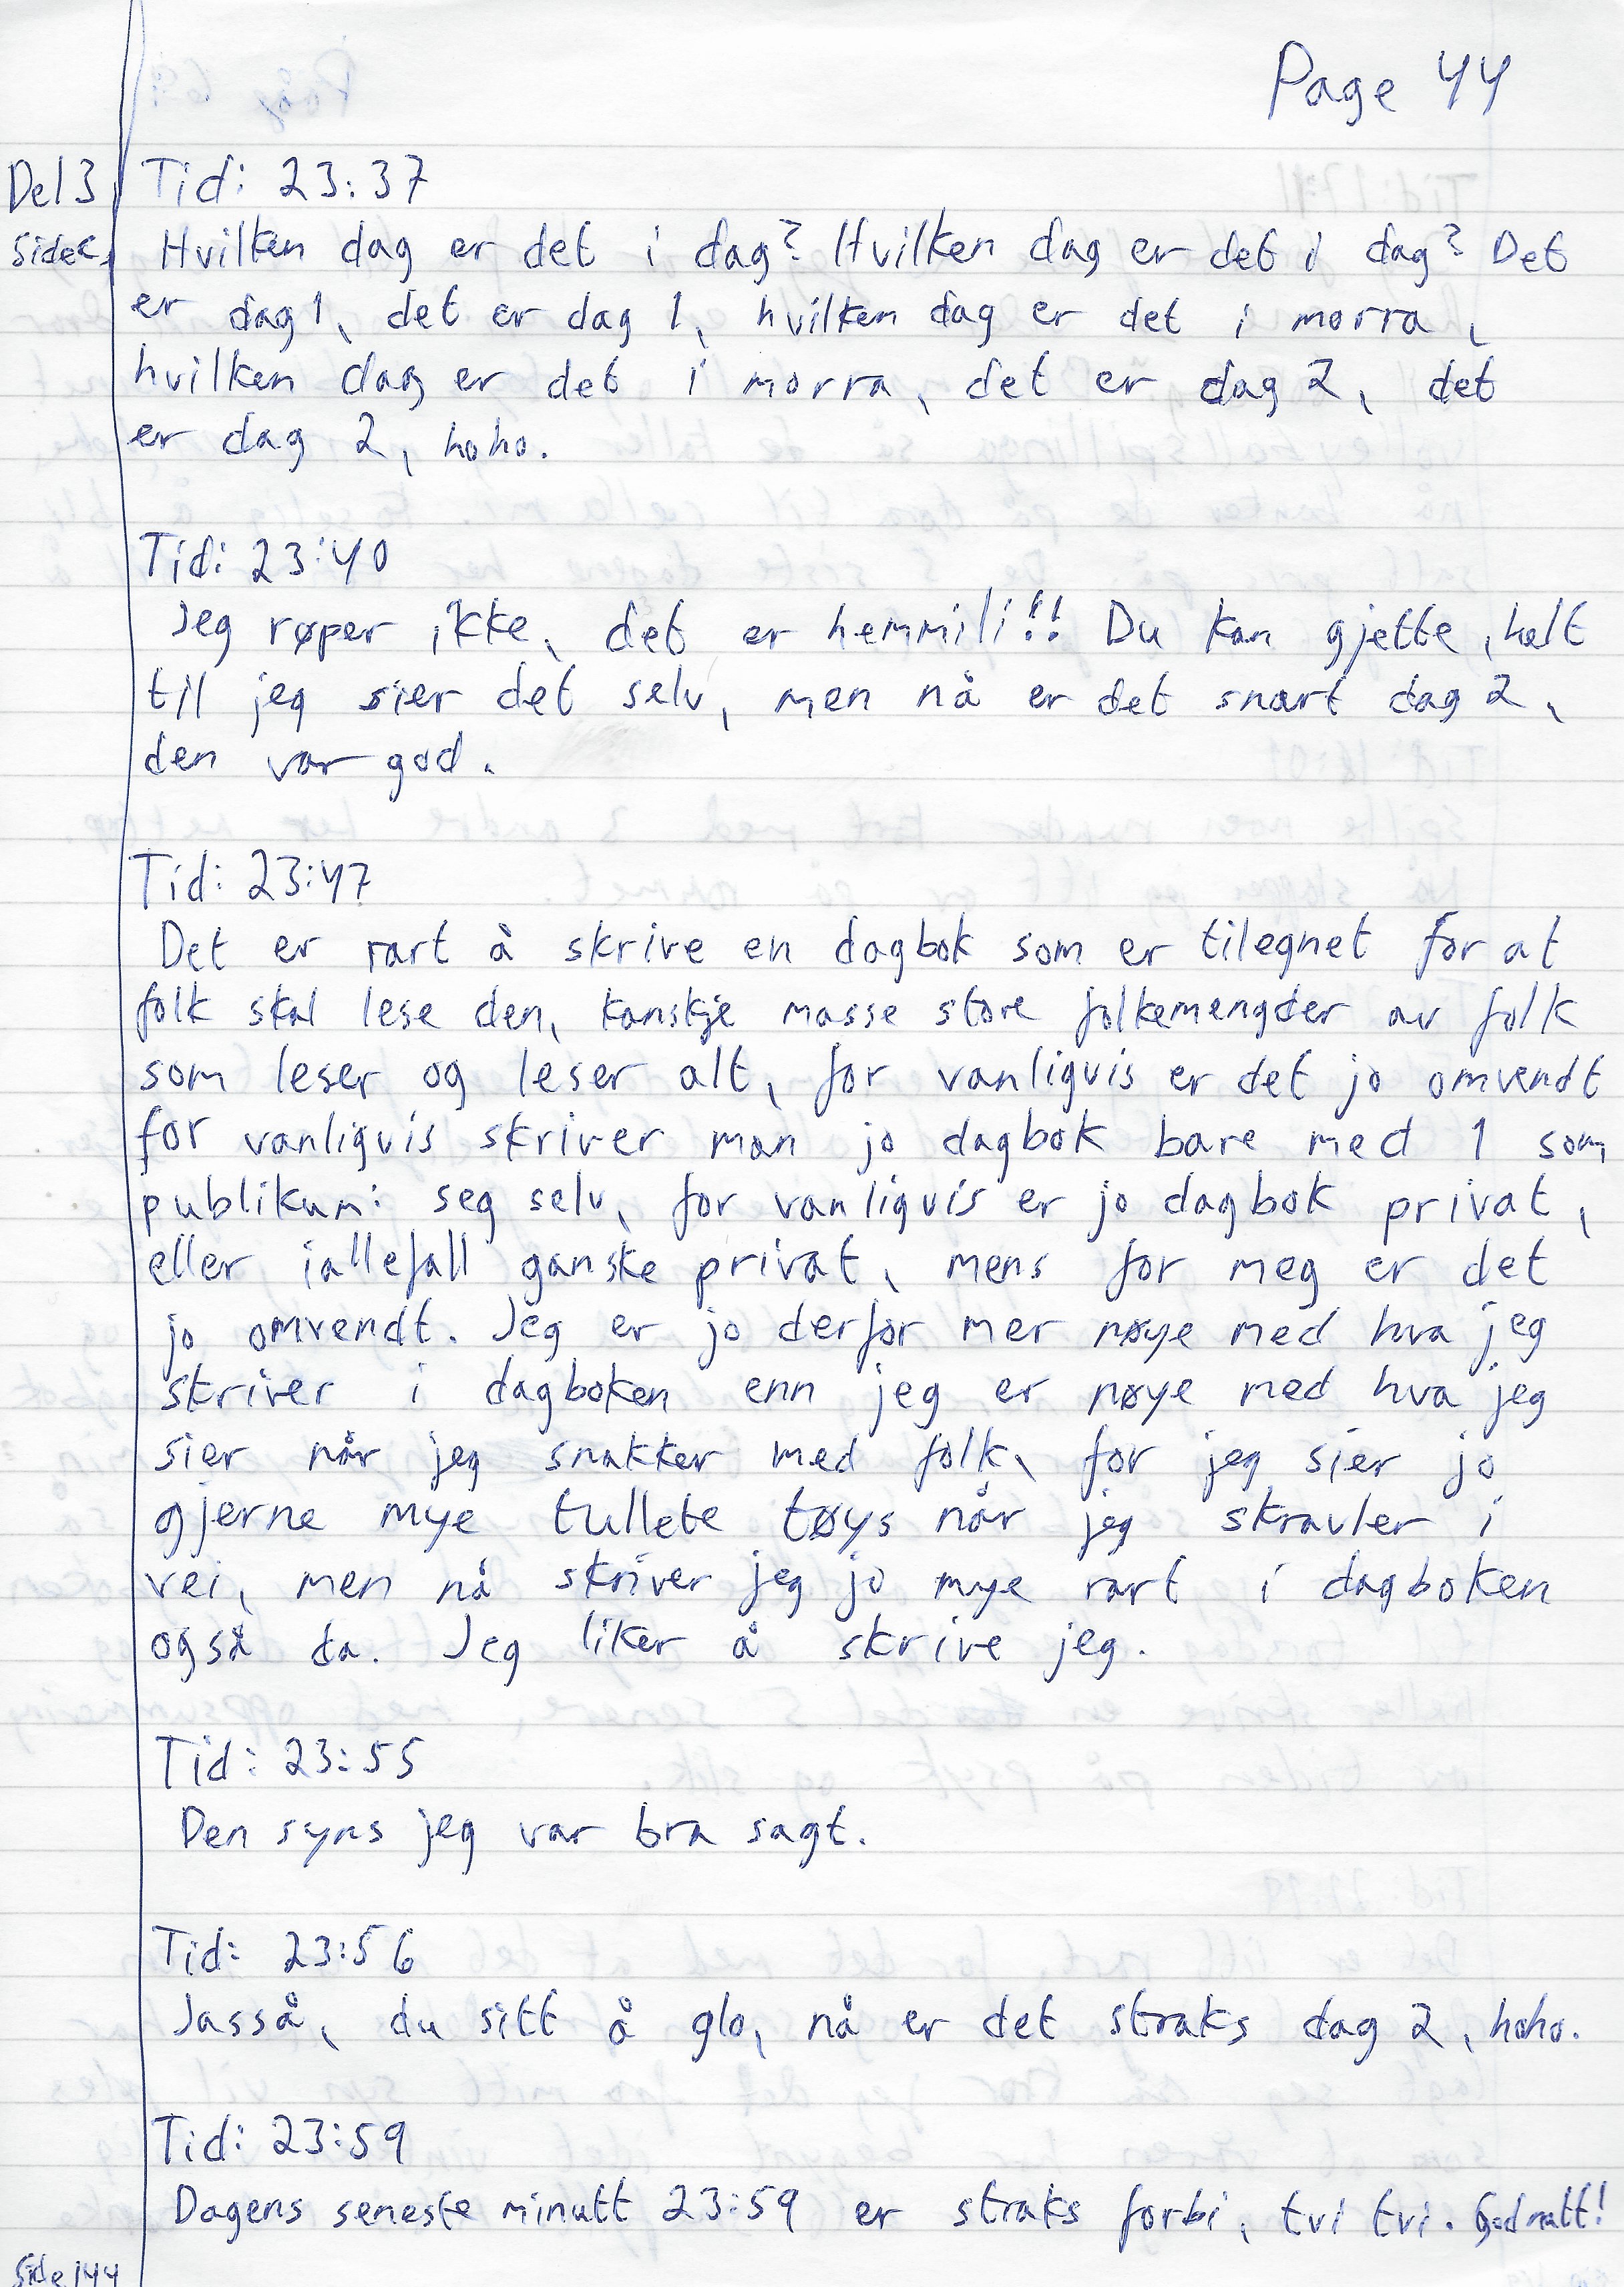 Page 44
Del 3 Tid: 23:37
Side Hvilken dag er det i dag? Hvilken dag er det i dag? Det
er dag 1, det er dag 1, hvilken dag er det i morra,
hvilken dag er det i morra, det er dag 2, det
er dag 2, hoho.
Tid: 23:40
Jeg røper ikke, det er hemmili!! Du kan gjette, helt
til jeg sier det selv, men nå er det snart dag 2,
den var god.
Tid: 23:47
Det er rart å skrive en dagbok som er tilegnet for at
folk skal lese den, kanskje masse store folkemengder av folk
som leser og leser alt, for vanligvis er det jo omvendt
for vanligvis skriver man jo dagbok bare med 1 som
publikum: seg selv, for vanligvis er jo dagbok privat,
eller iallefall ganske privat, mens for meg er det
jo omvendt. Jeg er jo derfor mer nøye med hva jeg
skriver i dagboken enn jeg er nøye med hva jeg
sier når jeg snakker med folk, for jeg sier jo
gjerne mye tullete tøys når jeg skravler i
vei, men nå skriver jeg jo mye rart i dagboken
også da. Jeg liker å skrive jeg.
Tid: 23:55
Den syns jeg var bra sagt.
Tid: 23:56
Jasså, du sitt å glo, nå er det straks dag 2, hoho.
Tid: 23:59
Dagens seneste minutt 23:59 er straks forbi, tvi tvi. God natt!
Side 144